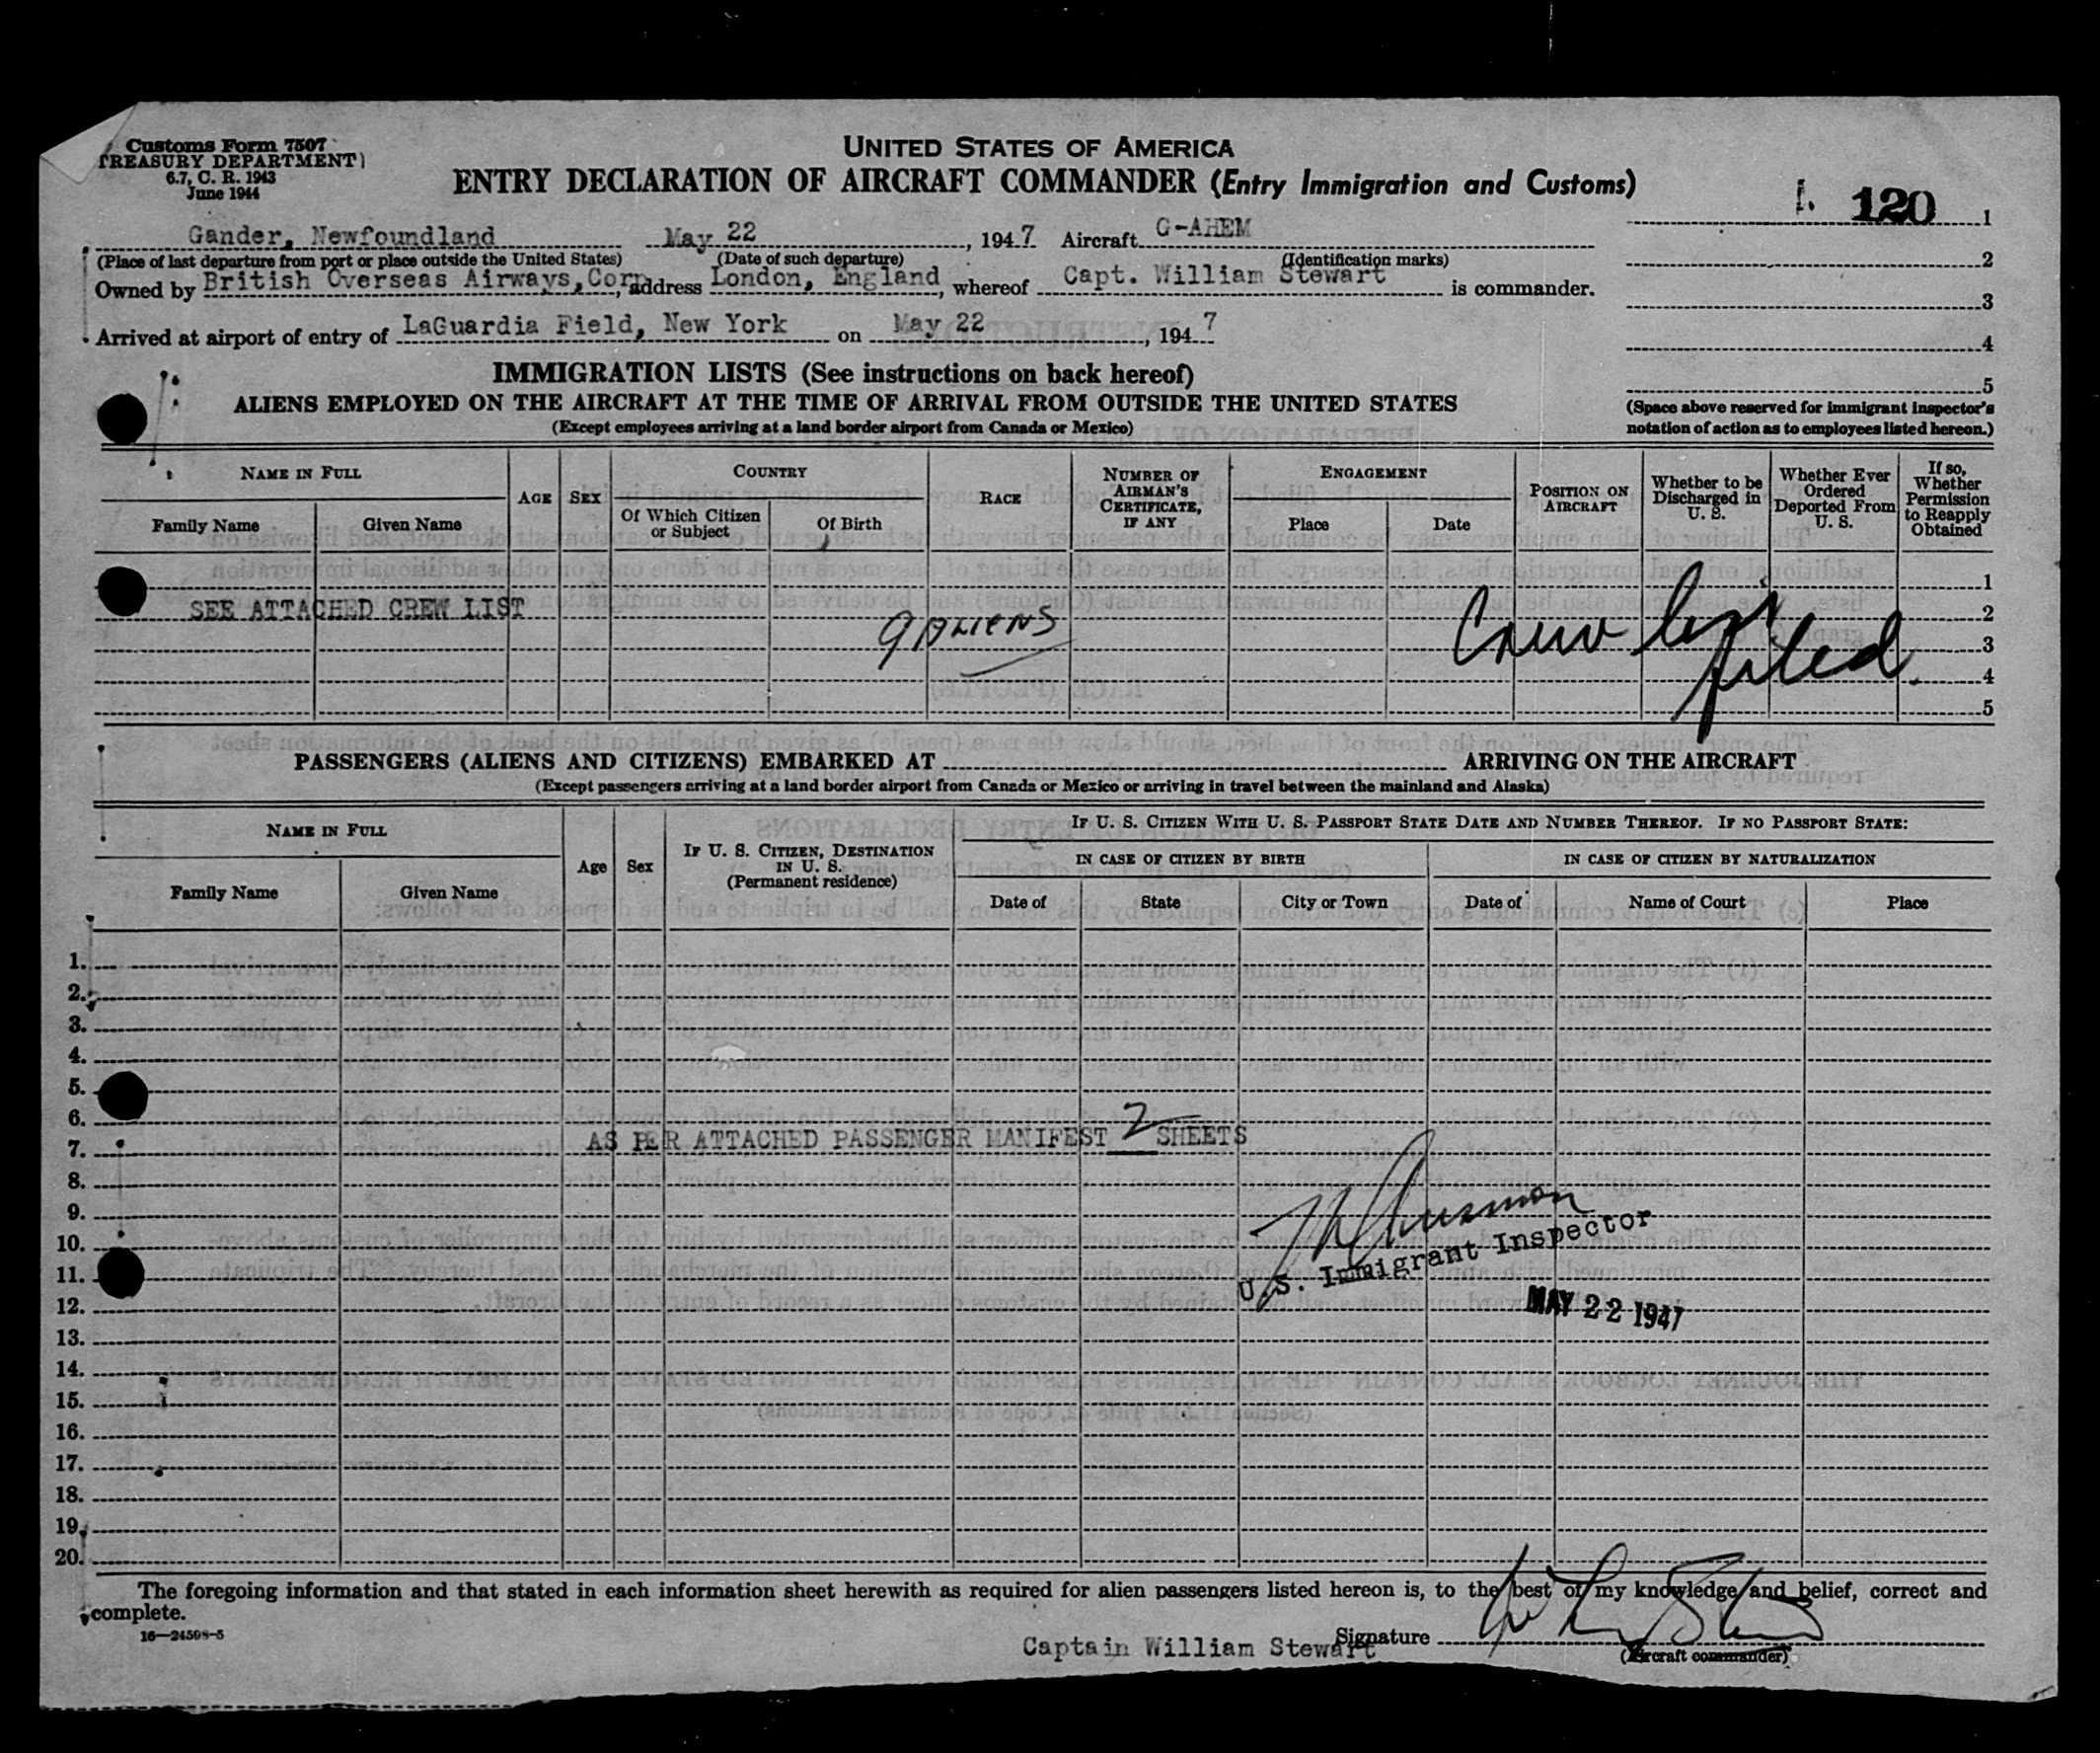 Customs Form 7507
TREASURY DEPARTMENT
6.7, C. R. 1943
June 1944
UNITED STATES OF AMERICA
ENTRY DECLARATION OF AIRCRAFT COMMANDER (Entry Immigration and Customs)
120 1
Gander, Newfoundland May 22, 1947 Aircraft G-AHEM
(Place of last departure from port or place outside the United States) (Date of such departure) (Identification marks)
2
Owned by British Overseas Airways, Corp, address London, England, whereof Capt. William Stewart is commander.
3
Arrived at airport of entry of LaGuardia Field, New York on May 22, 1947
4
5
IMMIGRATION LISTS (See instructions on back hereof)
ALIENS EMPLOYED ON THE AIRCRAFT AT THE TIME OF ARRIVAL FROM OUTSIDE THE UNITED STATES
(Except employees arriving at a land border airport from Canada or Mexico)
(Space above reserved for immigrant inspector's
notation of action as to employees listed hereon.)
NAME IN FULL
Family Name Given Name
AGE SEX
COUNTRY
Of Which Citizen
or Subject
Of Birth
RACE
NUMBER OF
AIRMAN'S
CERTIFICATE,
IF ANY
ENGAGEMENT
Place Date
POSITION ON
AIRCRAFT
Whether to be
Discharged in
U. S.
Whether Ever
Ordered
Deported From
U. S.
If so,
Whether
Permission
to Reapply
Obtained
1
SEE ATTACHED CREW LIST 2
9 ALIENS Crew list 3
filed. 4
5
PASSENGERS (ALIENS AND CITIZENS) EMBARKED AT ARRIVING ON THE AIRCRAFT
(Except passengers arriving at a land border airport from Canada or Mexico or arriving in travel between the mainland and Alaska)
NAME IN FULL
Family Name Given Name
Age Sex
IF U. S. CITIZEN, DESTINATION
IN U. S.
(Permanent residence)
IF U. S. CITIZEN WITH U. S. PASSPORT STATE DATE AND NUMBER THEREOF. IF NO PASSPORT STATE:
IN CASE OF CITIZEN BY BIRTH IN CASE OF CITIZEN BY NATURALIZATION
Date of State City or Town Date of Name of Court Place
1.
2.
3.
4.
5.
6.
AS PER ATTACHED PASSENGER MANIFEST 2 SHEETS
7.
8.
9.
10.
U.S. Immigrant Inspector
11.
12.
MAY 22 1947
13.
14.
15.
16.
17.
18.
19.
20.
The foregoing information and that stated in each information sheet herewith as required for alien passengers listed hereon is, to the best of my knowledge and belief, correct and
complete.
16—24598-5
Captain William Stewart Signature
(Aircraft commander)